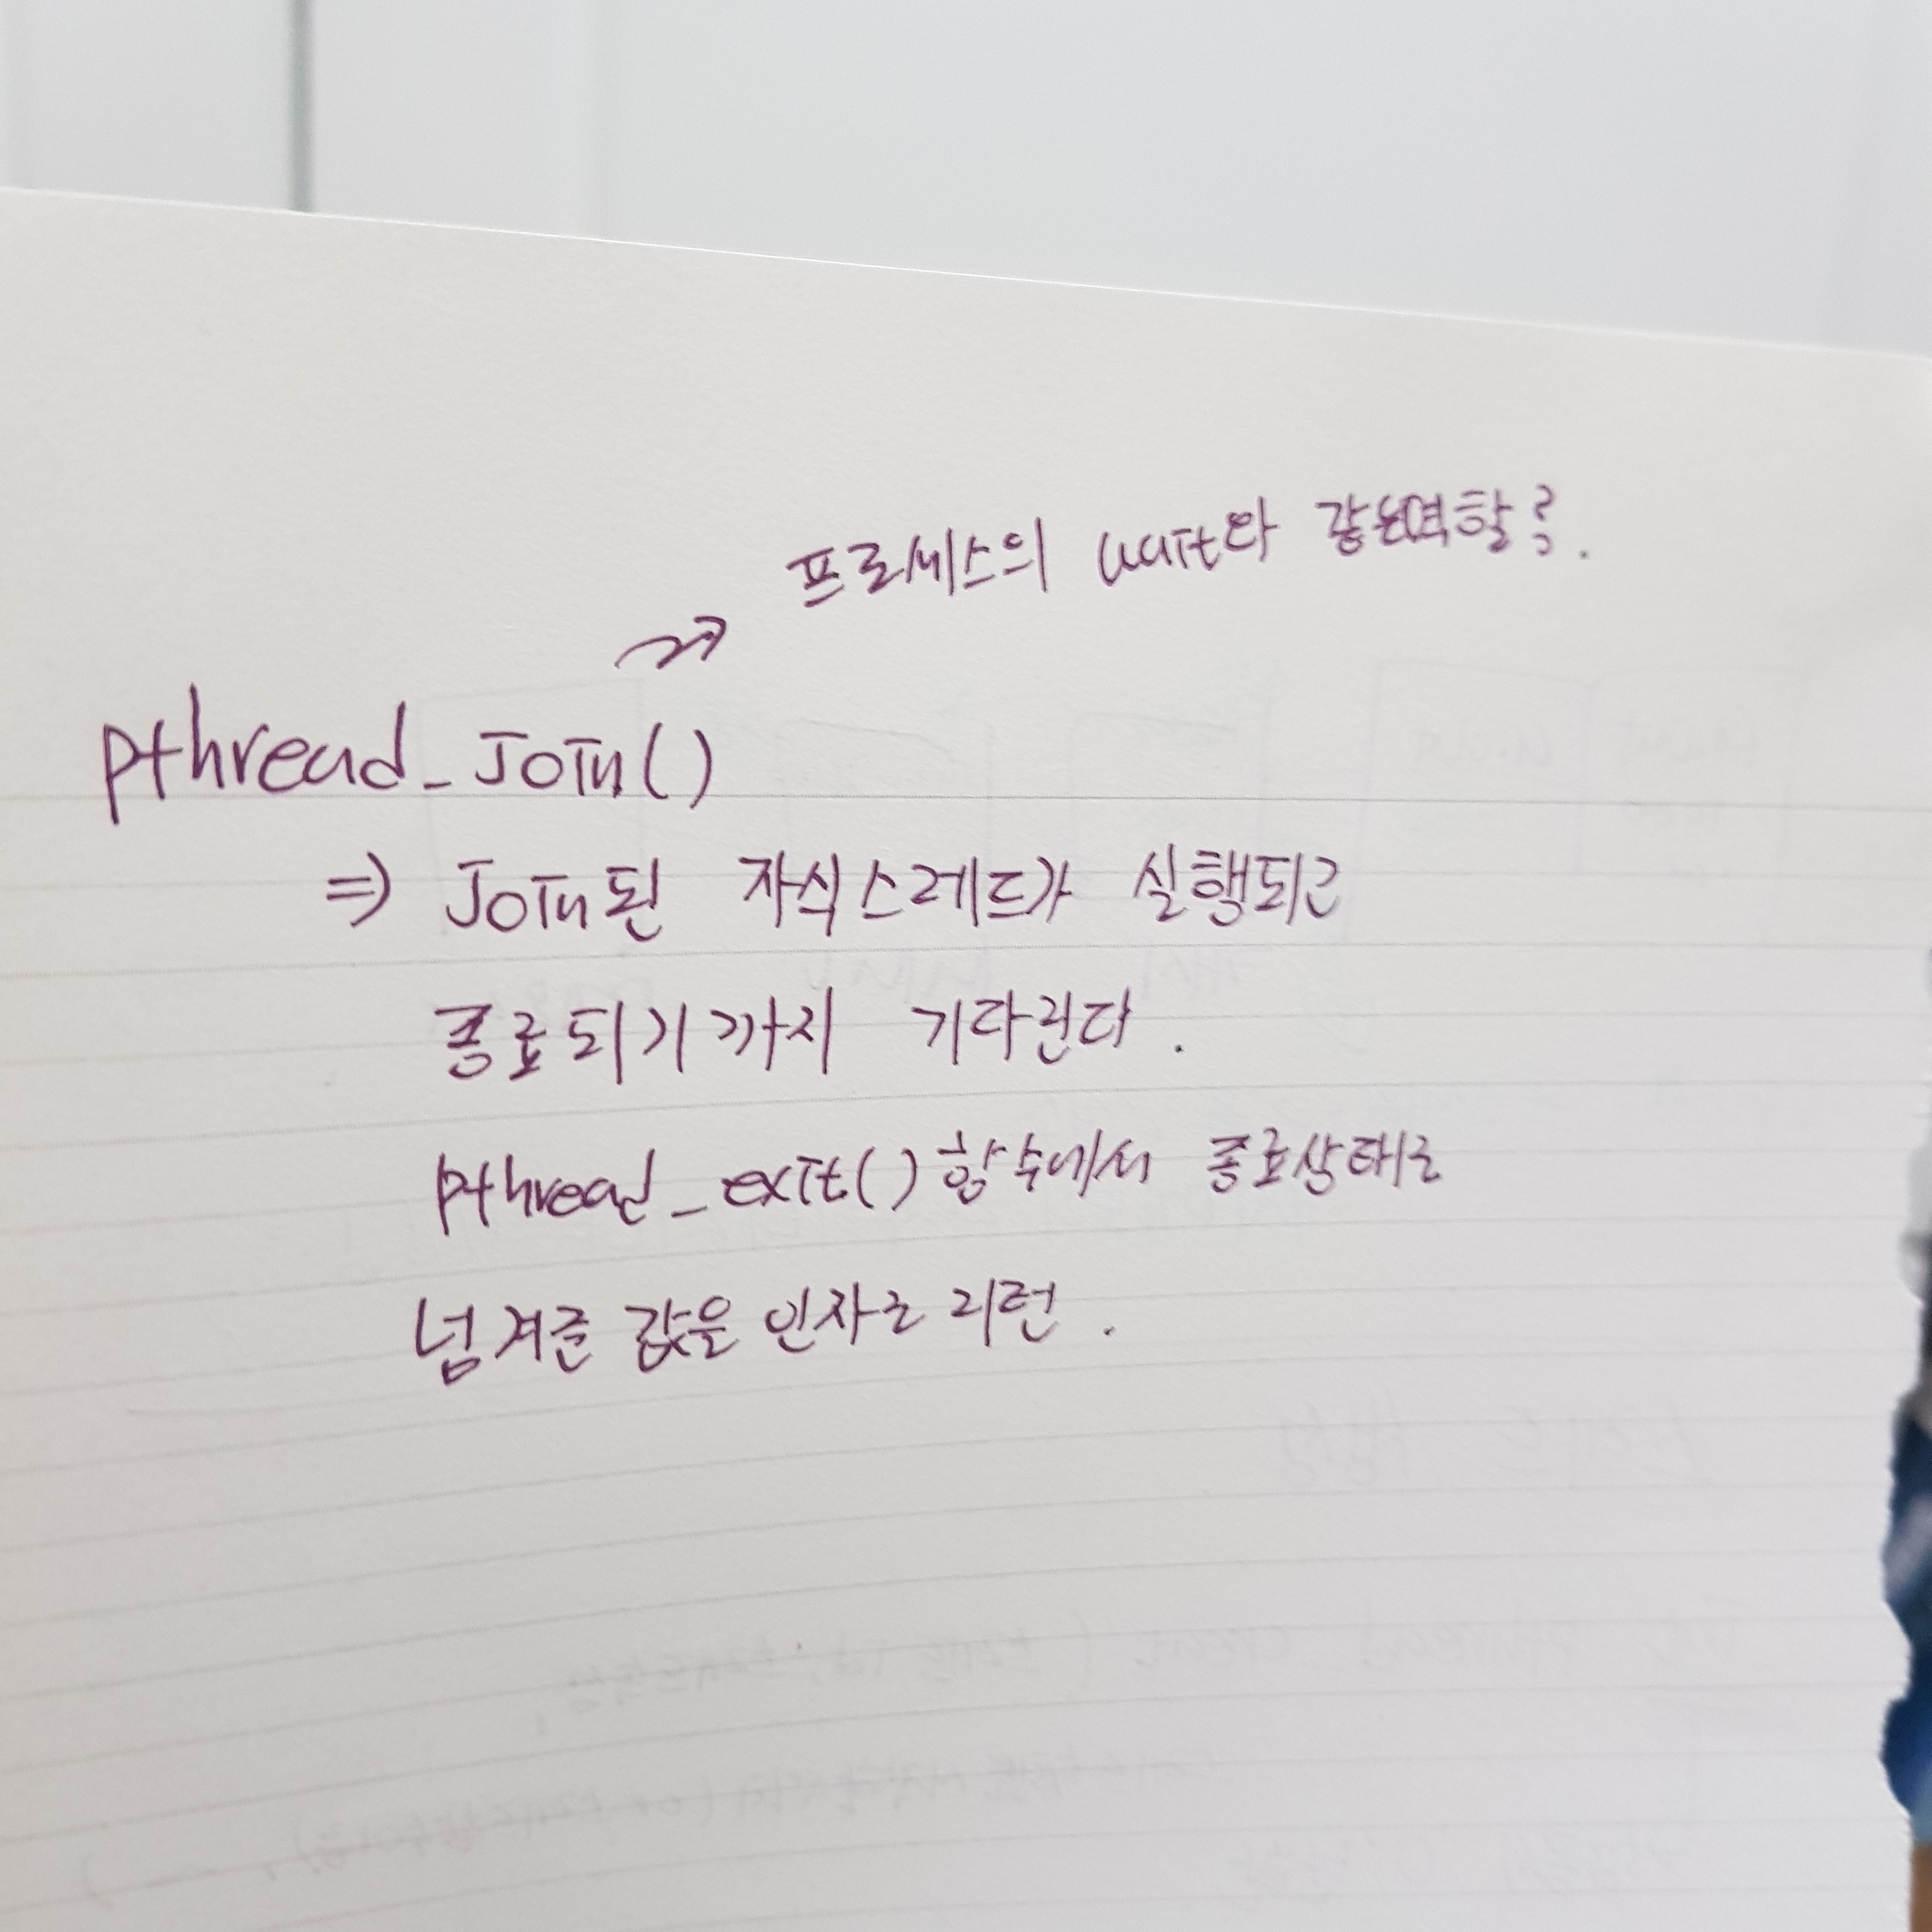 프로세스의 wait와 같은역할.
pthread_join()
⇒ Join된 자식스레드가 실행되고
종료되기까지 기다린다.
pthread_exit() 함수에서 종료상태로
넘겨준 값을 인자로 리턴.